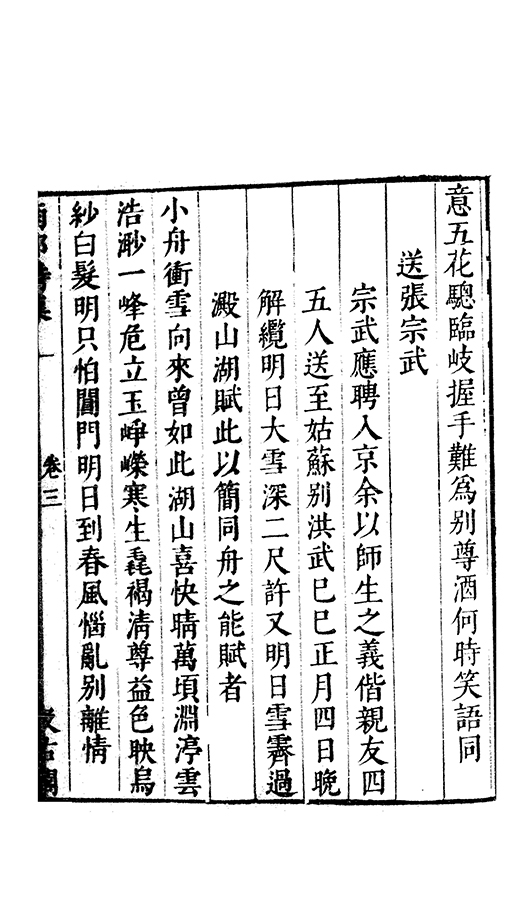 意五花驄臨岐握手難爲别尊酒何時笑語同
送張宗武
宗武應聘入京余以師生之義偕親友四
五人送至姑蘇别洪武巳巳正月四日晩
解纜明日大雪深二尺許又明日雪霽過
澱山湖賦此以簡同舟之能賦者
小舟衝雪向來曾如此湖山喜快晴萬頃淵渟雲
浩渺一峰危立玉崢嶸寒生毳褐清尊益色映烏
紗白髮明只怕閶門明日到春風惱亂别離情
卷三